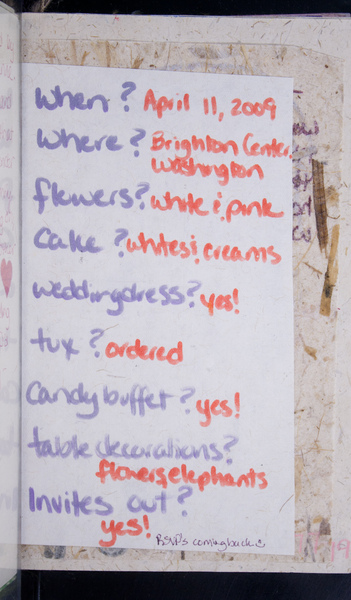 when? April 11, 2009
where? Brighton Center,
Washington
flowers? white & pink
cake? whites & creams
wedding dress? yes!
tux? ordered
candy buffet? yes!
table decorations?
flowers, elephants
Invites out?
yes!
RSVP's coming back